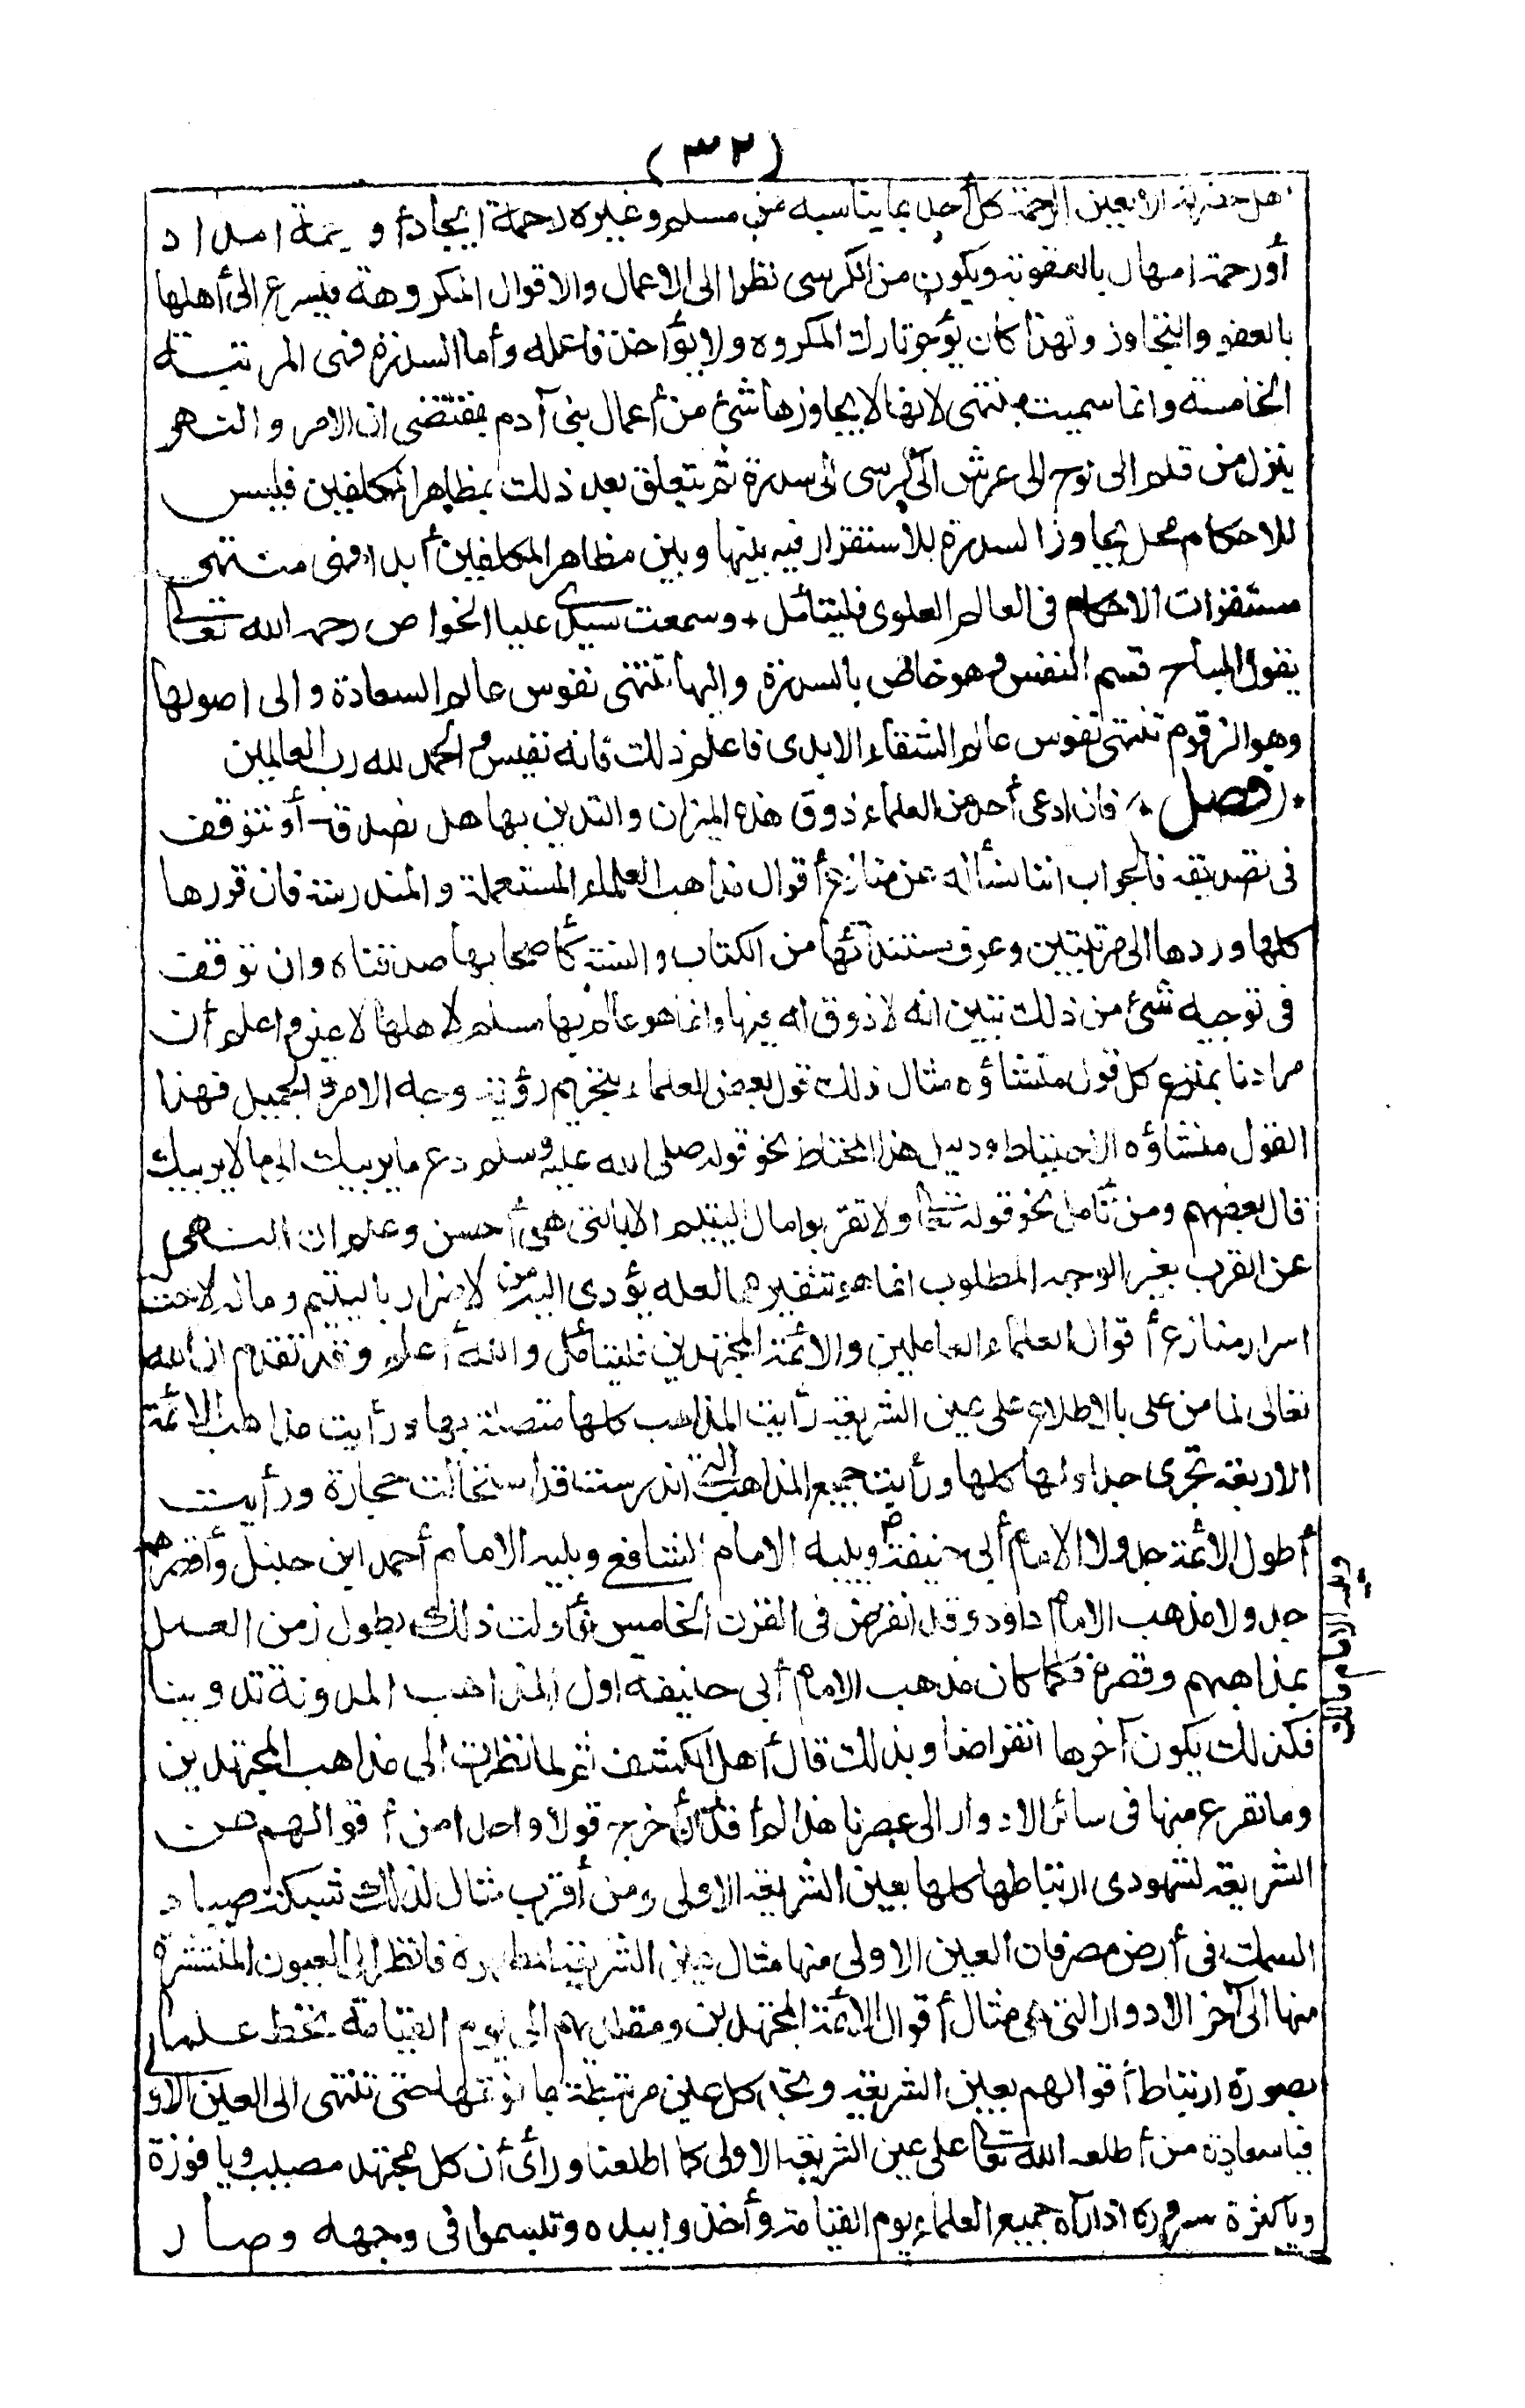 (٣٢)
أهل حضرته الا بعين الرحمة كل أحد بما يناسبه من مسلم وغيره رحمة ايجاد أو رحمة امداد
أو رحمة امهال بالعقوبة ويكون من الكرسى نظرا الى الاعمال والاقوال المكروهة فيسرع الى أهلها
بالعفو والتجاوز ولهذا كان يؤجر تارك المكروه ولا يؤاخذ فاعله وأما السدرة فهى المرتبة
الخامسة وانما سميت منتهى لانها لا يجاوزها شئ من أعمال بنى آدم بمقتضى ان الامر والنهى
ينزل من قلم الى لوح الى عرش الى كرسى الى سدرة ثم يتعلق بعد ذلك بمظاهر المكلفين فليس
للاحكام محل يجاوز السدرة للاستقرار فيه بينها وبين مظاهر المكلفين أبدا فهى منتهى
مستقرات الاحكام فى العالم العلوى فليتأمل ٭ وسمعت سيدى عليا الخواص رحمه الله تعالى
يقول المباح قسم النفس وهو خاص بالسدرة واليها تنتهى نفوس عالم السعادة والى اصولها
وهو الزقوم تنتهى نفوس عالم الشقاء الابدى فاعلم ذلك فانه نفيس والحمد لله رب العالمين
٭ (فصل) ٭ فان ادعى أحد من العلماء ذوق هذه الميزان والتدين بها هل نصدقه أو نتوقف
فى تصديقه فالجواب اننا نسأله عن منازع أقوال مذاهب العلماء المستعملة والمندرسة فان قررها
كلها وردها الى مرتبتين وعرف مستنداتها من الكتاب والسنة كأصحابها صدقناه وان توقف
فى توجيه شئ من ذلك تبين انه لا ذوق له فيها وانما هو عالم بها مسلم لاهلها لا غير واعلم أن
مرادنا بمنزع كل قول منشاؤه مثال ذلك قول بعض العلماء بتحريم رؤية وجه الامرد الجميل فهذا
القول منشاؤه الاحتياط ودليل هذا المحتاط نحو قوله صلى الله عليه وسلم دع ما يريبك الى ما لا يريبك
قال بعضهم ومن تأمل نحو قوله تعالى ولا تقربوا مال اليتيم الا بالتى هى أحسن وعلم ان النهى
عن القرب بغير الوجه المطلوب انما هو تنفير مما لعله يؤدى اليه من الاضرار باليتيم وماله لاحت
اسرار منازع أقوال العلماء العاملين والائمة المجتهدين فليتأمل والله أعلم وقد تقدم ان الله
تعالى لما من على بالاطلاع على عين الشريعة رأيت المذاهب كلها متصلة بها ورأيت مذاهب الائمة
الاربعة تجرى جداولها كلها ورأيت جميع المذاهب التى اندرست قد استحالت حجارة ورأيت
أطول الائمة جدولا الامام أبى حنيفة ويليه الامام الشافعى ويليه الامام أحمد ابن حنبل وأقصرهم
ويليه الامام مالك
جدولا مذهب الامام داود وقد انقرض فى القرن الخامس فأولت ذلك بطول زمن العمل
بمذاهبهم وقصره فكما كان مذهب الامام أبى حنيفة اول المذاهب المدونة تدوينا
فكذلك يكون آخرها انقراضا وبذلك قال أهل الكشف ثم لما نظرت الى مذاهب المجتهدين
وما تفرع منها فى سائر الادوار الى عصرنا هذا لم أقدر أن أخرج قولا واحدا من أقوالهم عن
الشريعة لشهودى ارتباطها كلها بعين الشريعة الاولى ومن أقرب مثال لذلك شبكة صياد
السمك فى أرض مصر فان العين الاولى منها مثال عين الشريعة المطهرة فانظر الى العيون المنتشرة
منها الى آخر الادوار التى هى مثال أقوال الائمة المجتهدين ومقلديهم الى يوم القيامة تحط علما
بصورة ارتباط أقوالهم بعين الشريعة وتجد كل عين مرتبطة بما فوقها حتى تنتهى الى العين الاولى
فيا سعادة من أطلعه الله تعالى على عين الشريعة الاولى كما اطلعنا ورأى أن كل مجتهد مصيب ويا فوزه
ويا كثرة سروره اذا رآه جميع العلماء يوم القيامة وأخذوا بيده وتبسموا فى وجهه وصار